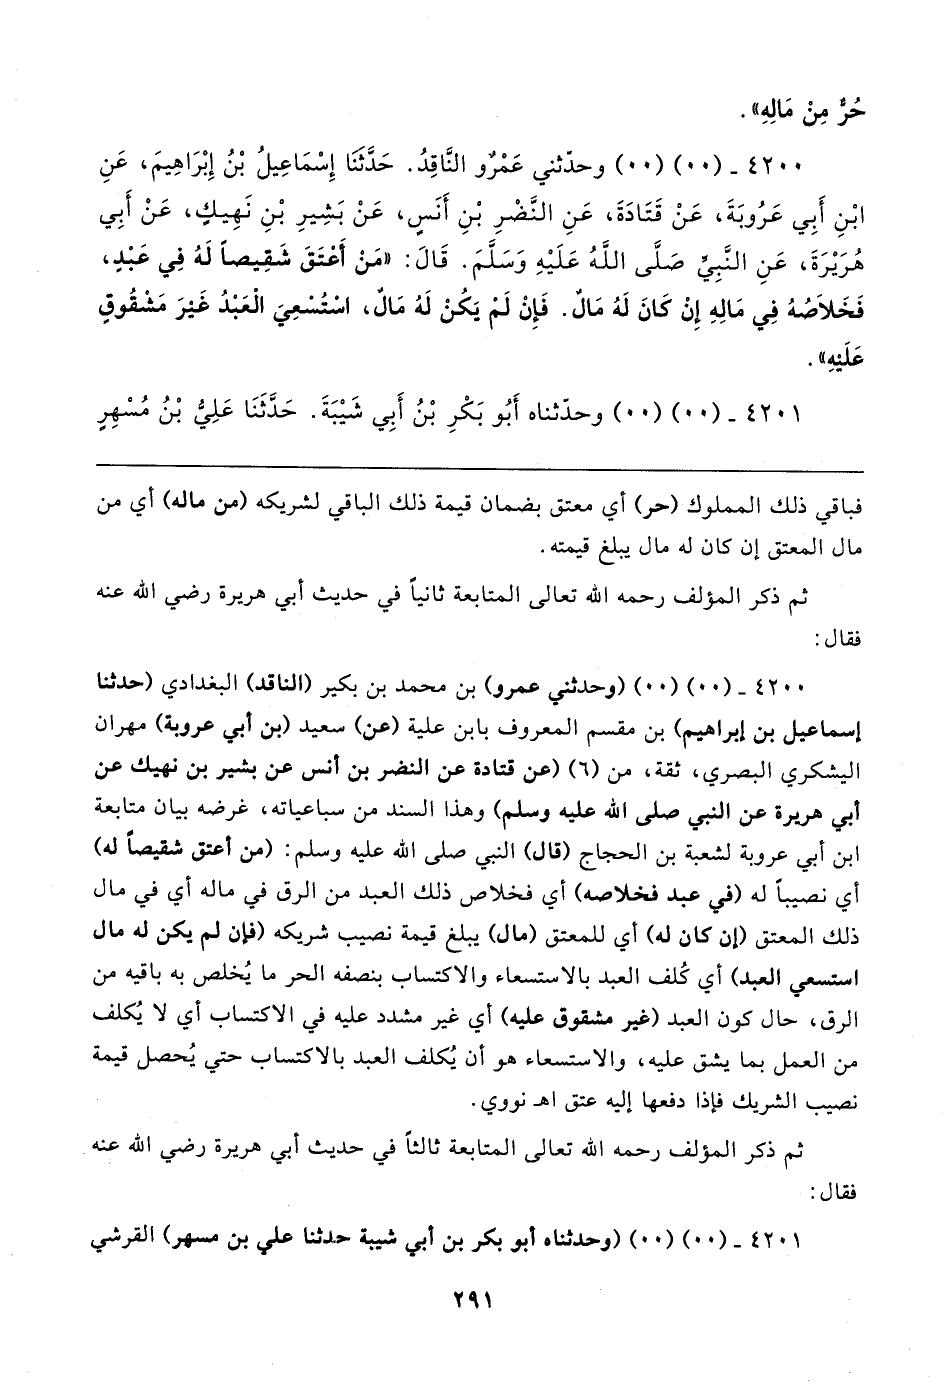 حُرٌّ مِنْ مَالِهِ».
٤٢٠٠ ـ (٠٠) (٠٠) وحدّثني عَمْرٌو النَّاقِدُ. حَدَّثَنَا إِسْمَاعِيلُ بْنُ إِبْرَاهِيمَ، عَنِ
ابْنِ أَبِي عَرُوبَةَ، عَنْ قَتَادَةَ، عَنِ النَّضْرِ بْنِ أَنَسٍ، عَنْ بَشِيرِ بْنِ نَهِيكٍ، عَنْ أَبِي
هُرَيْرَةَ، عَنِ النَّبِيِّ صَلَّى اللَّهُ عَلَيْهِ وَسَلَّمَ. قَالَ: «مَنْ أَعْتَقَ شَقِيصاً لَهُ فِي عَبْدٍ،
فَخَلاَصُهُ فِي مَالِهِ إِنْ كَانَ لَهُ مَالٌ. فَإِنْ لَمْ يَكُنْ لَهُ مَالٌ، اسْتُسْعِيَ الْعَبْدُ غَيْرَ مَشْقُوقٍ
عَلَيْهِ».
٤٢٠١ ـ (٠٠) (٠٠) وحدّثناه أَبُو بَكْرِ بْنُ أَبِي شَيْبَةَ. حَدَّثَنَا عَلِيُّ بْنُ مُسْهِرٍ
فباقي ذلك المملوك (حر) أي معتق بضمان قيمة ذلك الباقي لشريكه (من ماله) أي من
مال المعتق إن كان له مال يبلغ قيمته.
ثم ذكر المؤلف رحمه الله تعالى المتابعة ثانياً في حديث أبي هريرة رضي الله عنه
فقال:
٤٢٠٠ ـ (٠٠) (٠٠) (وحدثني عمرو) بن محمد بن بكير (الناقد) البغدادي (حدثنا
إسماعيل بن إبراهيم) بن مقسم المعروف بابن علية (عن) سعيد (بن أبي عروبة) مهران
اليشكري البصري، ثقة، من (٦) (عن قتادة عن النضر بن أنس عن بشير بن نهيك عن
أبي هريرة عن النبي صلى الله عليه وسلم) وهذا السند من سباعياته، غرضه بيان متابعة
ابن أبي عروبة لشعبة بن الحجاج (قال) النبي صلى الله عليه وسلم: (من أعتق شقيصاً له)
أي نصيباً له (في عبد فخلاصه) أي فخلاص ذلك العبد من الرق في ماله أي في مال
ذلك المعتق (إن كان له) أي للمعتق (مال) يبلغ قيمة نصيب شريكه (فإن لم يكن له مال
استسعي العبد) أي كُلف العبد بالاستسعاء والاكتساب بنصفه الحر ما يُخلص به باقيه من
الرق، حال كون العبد (غير مشقوق عليه) أي غير مشدد عليه في الاكتساب أي لا يُكلف
من العمل بما يشق عليه، والاستسعاء هو أن يُكلف العبد بالاكتساب حتي يُحصل قيمة
نصيب الشريك فإذا دفعها إليه عتق اهـ نووي.
ثم ذكر المؤلف رحمه الله تعالى المتابعة ثالثاً في حديث أبي هريرة رضي الله عنه
فقال:
٤٢٠١ ـ (٠٠) (٠٠) (وحدثناه أبو بكر بن أبي شيبة حدثنا علي بن مسهر) القرشي
٢٩١